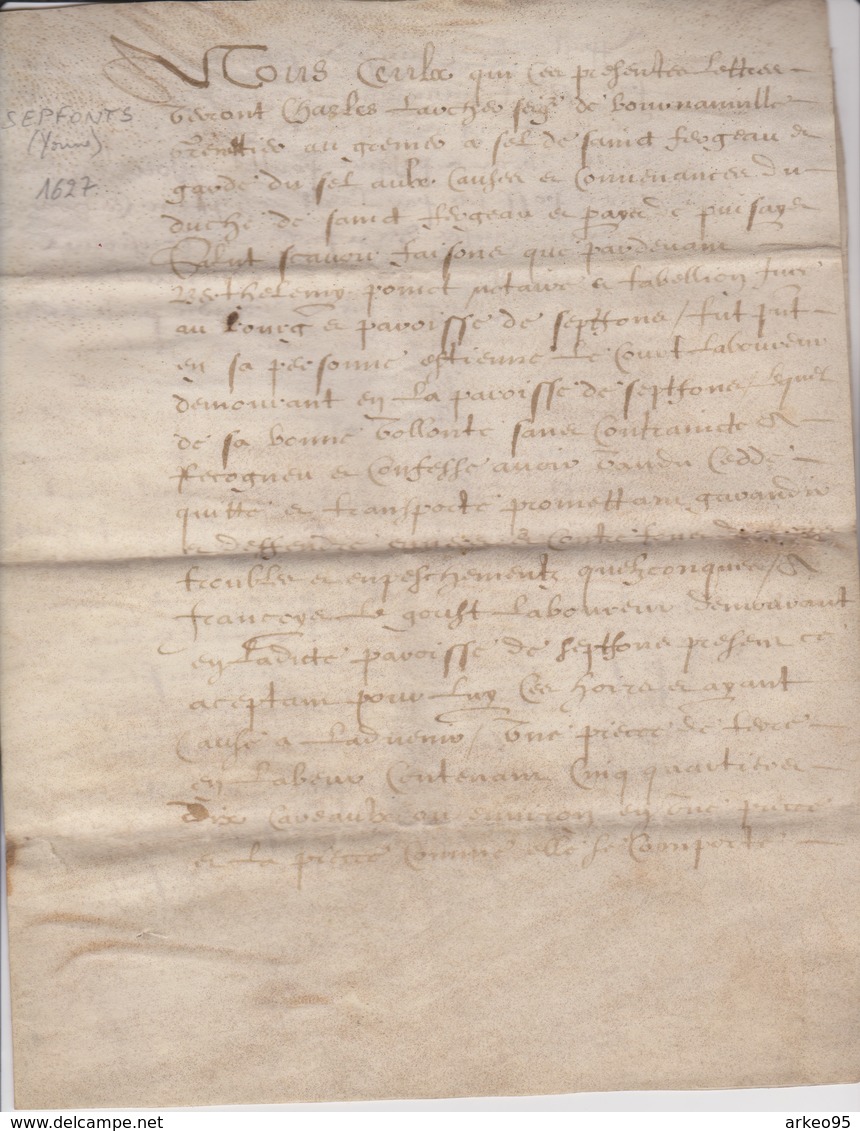 SEPFONTS
(Yonne)
1627
A Tous Ceulx qui ces presentes Lettres
verront Charles Larcher seigr de
Grenettier au grenier a sel de sainct fergeau et
garde du sel aulx Causes et Convenances du
duche de sainct fergeau et payes de puisaye
Salut scavoir faisons que pardevant
Berthelemy notaire et tabellion
au bourg et paroisse de septfons / fut pnt
en sa personne estienne Le Court Laboureur
demourant en La paroisse de septfons Lequel
de sa bonne vollonte sans Contraincte A
Recogneu et Confesse avoir vandu Cedde
quitte et transporte promettant garandir
et deffendre envers et Contre tous
troubles et enpeschementz quelzconques / A
francoys Le goust Laboureur demourant
en Ladicte paroisse de septfons present ce
aceptant pour Luy Ces hoirs et ayant
Cause a Ladvenir / Une piece de terre
en Labeur Contenant Cinq quartiers
Dix Careaulx ou environ en une piece
et La piece Comme elle se Comporte
www.delcampe.net
arkeo95